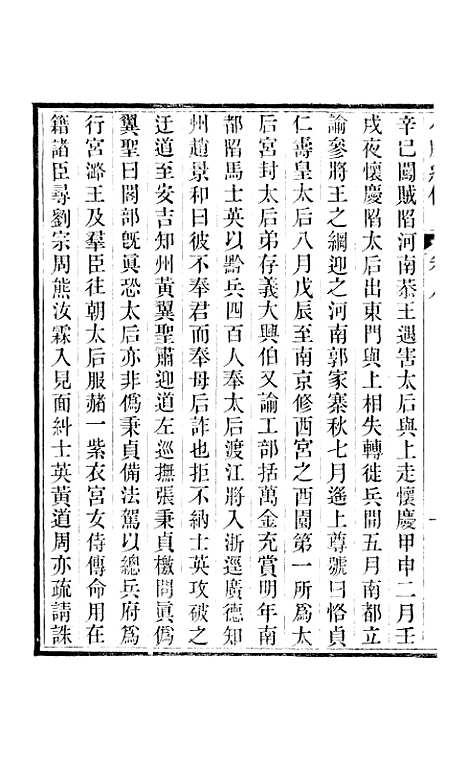 辛巳闖賊陷河南恭王遇害太后與上走懷慶甲申二月壬
戌夜懷慶陷太后出東門與上相失轉徙兵間五月南都立
諭參將王之綱迎之河南郭家寨秋七月遙上尊號曰恪貞
仁壽皇太后八月戊辰至南京修西宮之西園第一所爲太
后宮封太后弟存義大興伯又諭工部括萬金充賞明年南
都陷馬士英以黔兵四百人奉太后渡江將入浙逕廣德知
州趙景和曰彼不奉君而奉母后詐也拒不納士英攻破之
迂道至安吉知州黃翼聖肅迎道左巡撫張秉貞檄問眞僞
翼聖曰閣部旣眞恐太后亦非僞秉貞備法駕以總兵府爲
行宮潞王及羣臣往朝太后服赭一紫衣宮女侍傳命用在
籍諸臣尋劉宗周熊汝霖入見面糾士英黃道周亦疏請誅